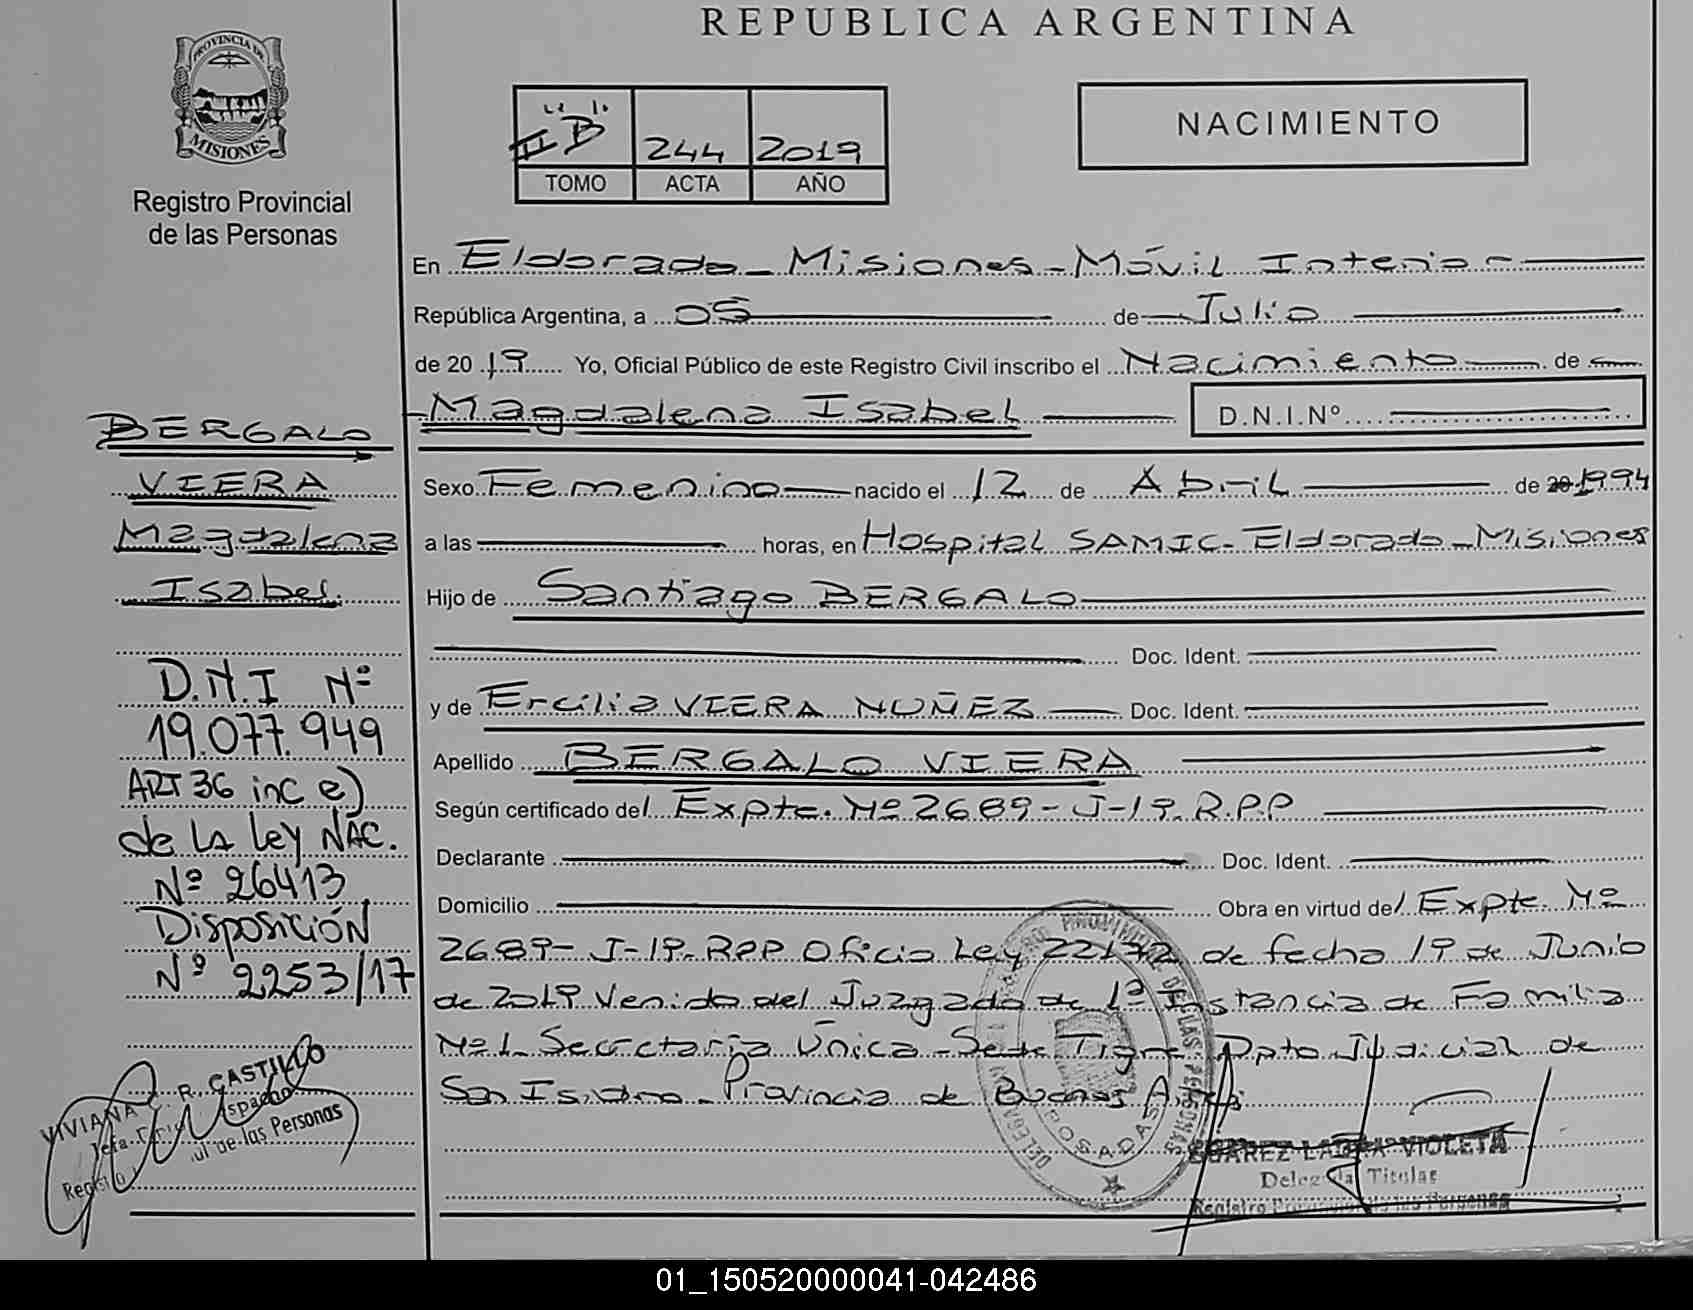 REPUBLICA ARGENTINA
PROVINCIA DE
MISIONES
Registro Provincial
de las Personas
"II B"
244
2019
TOMO
ACTA
AÑO
NACIMIENTO
En Eldorado - Misiones - Móvil Interior
República Argentina, a 05 de Julio
de 2019 Yo, Oficial Público de este Registro Civil inscribo el Nacimiento de
Magdalena Isabel D.N.I.Nº
Sexo Femenino nacido el 12 de Abril de 20 1994
a las horas, en Hospital SAMIC - Eldorado - Misiones
Hijo de Santiago BERGALO
Doc. Ident.
y de Ercilia VIERA NUÑEZ Doc. Ident.
Apellido BERGALO VIERA
Según certificado del Expte. Nº 2689-J-19. R.P.P
Declarante Doc. Ident.
Domicilio Obra en virtud del Expte. Nº
2689-J-19. RPP Oficio Ley 22172 de fecha 19 de Junio
de 2019 Venido del Juzgado de 1ª Instancia de Familia
Nº 1 Secretaría Única - Sede Tigre Dpto Judicial de
San Isidro - Provincia de Buenos Aires
BERGALO
VIERA
Magdalena
Isabel
D.N.I Nº
19.077.949
ART 36 inc e)
de LA Ley NAC.
Nº 26413
Disposición
Nº 2253/17
VIVIANA R. CASTILLO
de las Personas
PROVINCIAL DE LAS PERSONAS
POSADAS
SUAREZ LAURA VIOLETA
Delegada Titular
Registro Provincial de las Personas
01_150520000041-042486